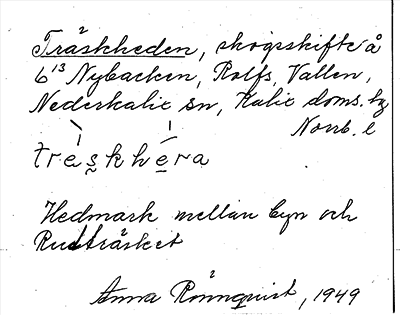 Träskheden, skogsskifte å
6¹³ Nybacken, Rolfs, Vallen,
Nederkalix sn, Kalix doms. hg
Norrb. l
tre̱s̱khe̱ra
Hedmark mellan byn och
Rudträsket
Anna Rönnquist, 1949